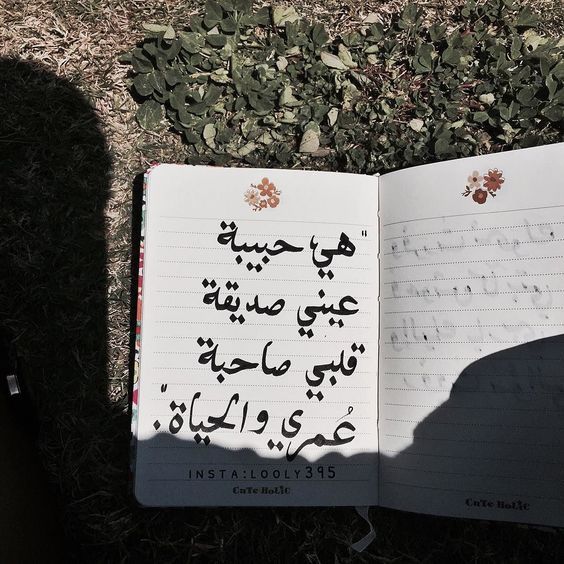 "هي حبيبة
عيني صديقة
قلبي صاحبة
عُمري والحياة".
INSTA:LOOLY395
CuTe-HoLiC
CuTe-HoLiC